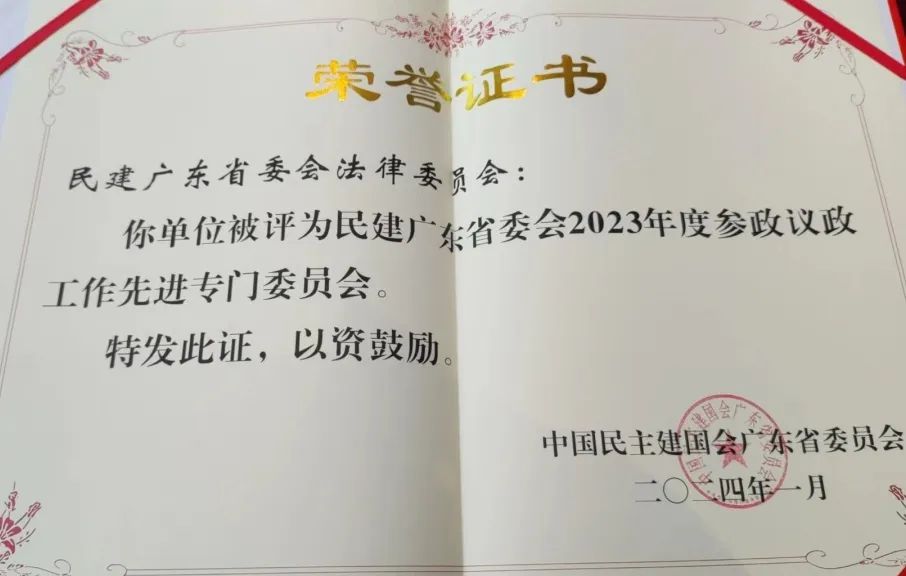 荣誉证书
民建广东省委会法律委员会：
你单位被评为民建广东省委会2023年度参政议政
工作先进专门委员会。
特发此证，以资鼓励。
中国民主建国会广东省委员会
二〇二四年一月
中国民主建国会广东省委员会